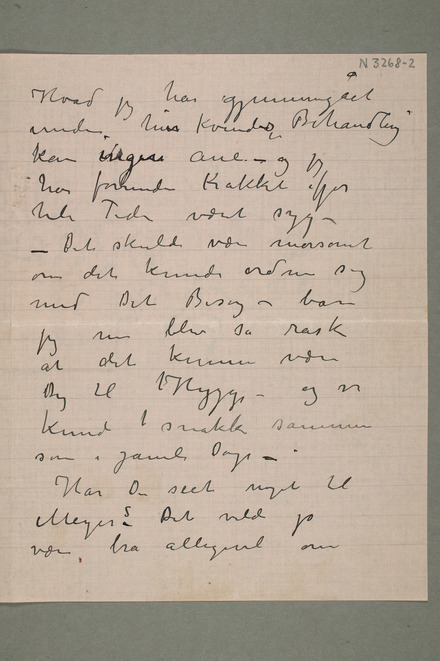 N 3268-2
Hvad jeg har gjennemgået
under hin Kvindes Behandling
kan ingen ane – og jeg
har foruden Krakket ifjor
hele Tiden vært syg –
– Det skulde være morsomt
om det kunde ordne sig
med Det Besøg – bare
jeg nu blev så rask
at det kunne være
Dig til Hygge – og vi
kunde snakke sammen
som i gamle Dage –
Har Du seet noget til
Meyer's Det vilde jo
være bra alligevel om